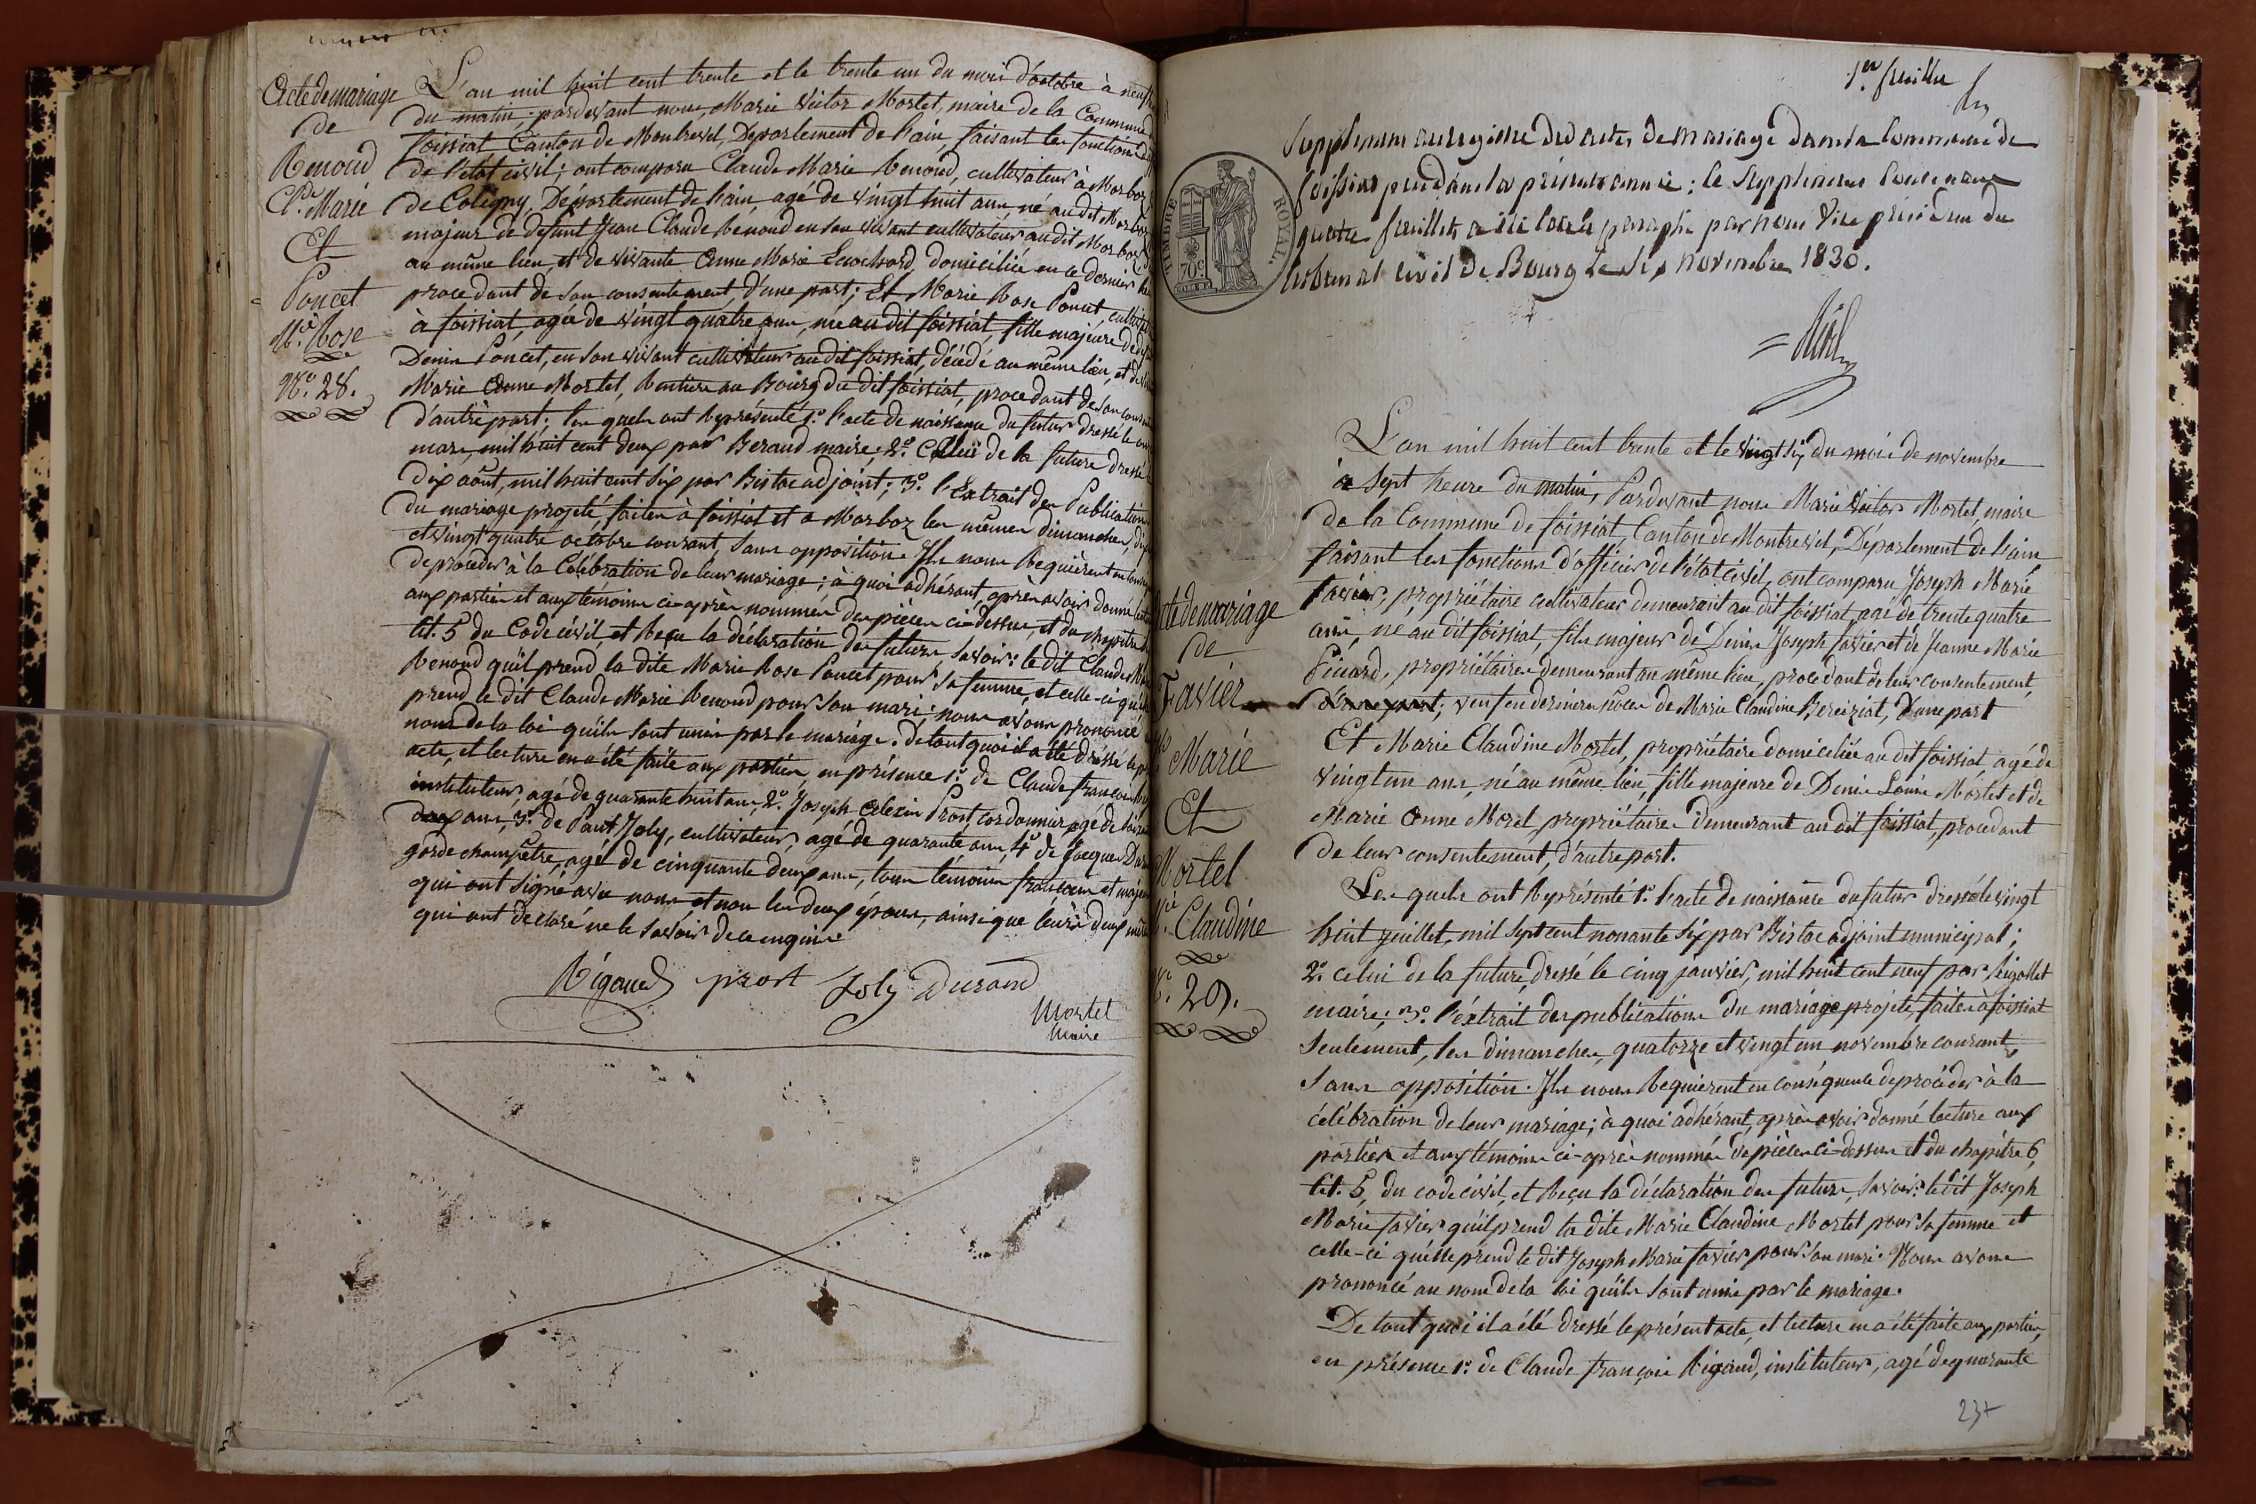 Acte de mariage
de
Renoud
Cl. Marie
Et
Poncet
Mie Rose
No. 28.
L'an mil huit cent trente et le trente un du mois d'octobre à neuf
du matin, pardevant nous, Marie Victor Mortet, maire de la Commune
foissiat Canton de Montrevel, Departement de l'ain, faisant les fonctions
de l'état civil; ont comparu Claude Marie Renoud, cultivateur à Marboz
de Coligny, Département de l'ain, agé de vingt huit ans né au dit Marboz
majeur de defunt Jean Claude Renoud en son vivant cultivateur au dit Marboz
au même lieu, et de vivante Anne Marie domiciliée en ce dernier
procedant de son consentement, d'une part; Et Marie Rose Poncet,
à foissiat, agée de vingt quatre ans, née au dit foissiat, fille majeure de
Denis Poncet, en son vivant cultivateur au dit foissiat, décédé au même lieu, et de
Marie Anne Mortet, Rentiere au Bourg du dit foissiat, procedant de son
d'autre part; les quels ont Représenté 1o. l'acte de naissance du futur dressé le
mars, mil huit cent deux par Beraud maire; 2o. Celui de la future dressé
dix août, mil huit cent six par Bistac adjoint; 3o. l'Extrait des Publications
du mariage projeté faites à foissiat et à Marboz les mêmes dimanches,
et vingt quatre octobre courant, sans opposition. Ils nous Requièrent en
de proceder à la Célébration de leur mariage; à quoi adhérant, après avoir donné
aux parties et aux temoins ci-après nommés des pièces ci-dessus, et du chapitre
tit. 5 du Code civil, et Reçu la déclaration des futurs, savoir: le dit Claude
Renoud qu'il prend la dite Marie Rose Poncet pour sa femme, et celle-ci
prend le dit Claude Marie Renoud pour son mari; nous avons prononcé
nom de la loi qu'ils sont unis par le mariage. De tout quoi il a été dréssé
acte, et lecture en a été faite aux parties, en présence 1o. de Claude francois
instituteur, agé de quarante huit ans, 2o. Joseph Prost cordonnier agé de
ans, 3o. de Paul Joly, cultivateur, agé de quarante ans, 4o de Jacques
garde champêtre, agé de cinquante deux ans, tous témoins français et
qui ont signé avec nous et non les deux époux, ainsi que leurs deux
qui ont declaré ne le savoir de ce enquis
Rigaud prost Joly Durand
Mortet
Maire
1er. feuillet
Supplement au registre des actes de mariage dans la Commune de
foissiat pendant la présente année; le supplement contenant
quatre feuillets a été coté & paraphé par nous Vice président du
tribunal civil de Bourg le six novembre 1830.
TIMBRE ROYAL.
70c
Acte de mariage
de
Favier
Marie
Et
Mortel
Claudine
29.
L'an mil huit cent trente et le vingt six du mois de novembre
à sept heure du matin, Pardevant nous Marie Victor Mortet, maire
de la Commune de foissiat, Canton de Montrevel, Département de l'ain
faisant les fonctions d'officier de l'état civil, ont comparu Joseph Marie
favier, propriétaire cultivateur demeurant au dit foissiat, agé de trente quatre
ans, né au dit foissiat, fils majeur de Denis Joseph favier et de Jeanne Marie
Picard, propriétaires demeurant au même lieu, procedant de leur consentement,
d'une part; veuf en derniere nôces de Marie Claudine Bereiziat, D'une part
Et Marie Claudine Mortel, propriétaire domiciliée au dit foissiat agé de
vingt un ans, né au même lieu, fille majeure de Denis Louis Mortet et de
Marie Anne Morel, propriétaires demeurant au dit foissiat, procedant
de leur consentement, d'autre part.
Les quels ont Représenté 1o. l'acte de naissance du futur dressé le vingt
huit juillet, mil sept cent nonante six par Bistac adjoint municipal;
2o. celui de la future, dressé le cinq janvier, mil huit cent neuf par Rigollet
maire; 3o. l'éxtrait des publications du mariage projeté, faites à foissiat
seulement, les dimanches, quatorze et vingt un novembre courant,
sans opposition. Ils nous Requièrent en conséquence de procéder à la
célébration de leur mariage; à quoi adhérant, après avoir donné lecture aux
parties et aux témoins ci-après nommés des pièces ci-dessus et du chapitre 6,
tit. 5, du code civil, et Reçu la déclaration des futurs, savoir: le dit Joseph
Marie favier qu'il prend la dite Marie Claudine Mortet pour sa femme et
celle-ci qu'elle prend le dit Joseph Marie favier pour son mari. Nous avons
prononcé au nom de la loi qu'ils sont unis par le mariage.
De tout quoi il a été dressé le présent acte, et lecture en a été faite aux parties,
en présence 1o. de Claude françois Rigaud, instituteur, agé de quarante
237